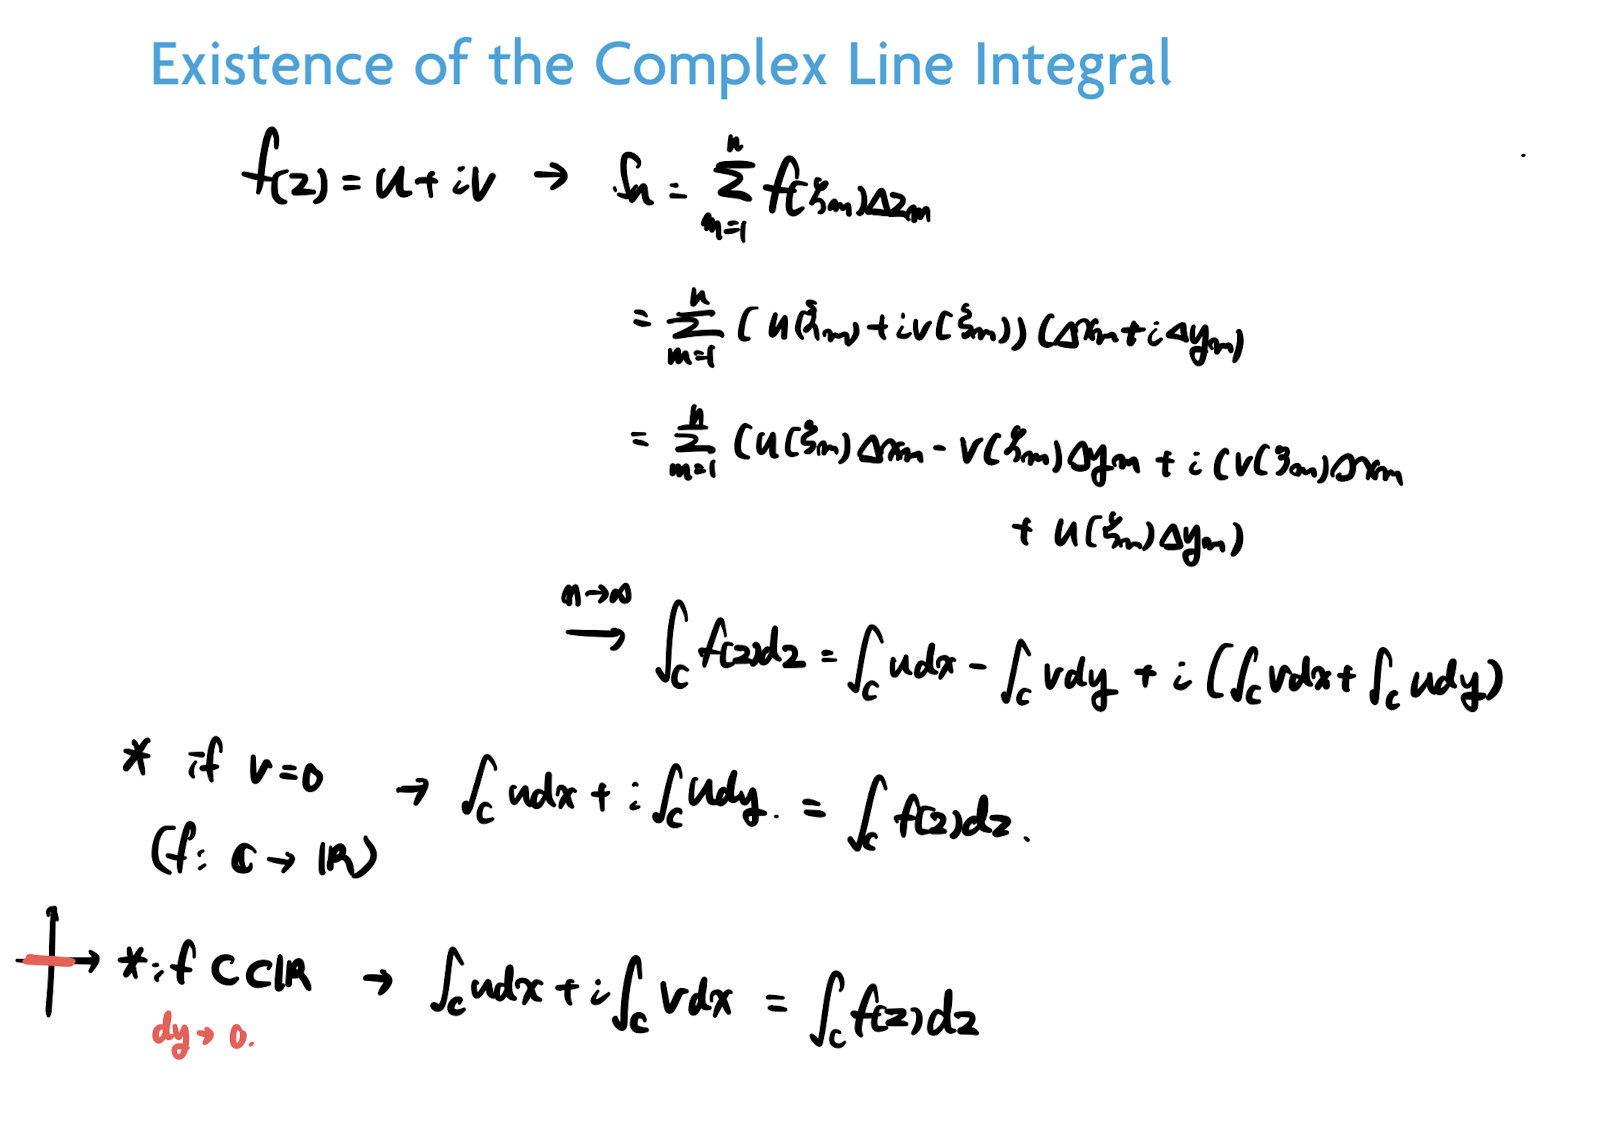 Existence of the Complex Line Integral
f(z) = u + iv → Sn = ∑_{m=1}^{n} f(ζm)Δzm
= ∑_{m=1}^{n} (u(ζm) + iv(ζm))(Δxm + iΔym)
= ∑_{m=1}^{n} (u(ζm)Δxm - v(ζm)Δym + i(v(ζm)Δxm
+ u(ζm)Δym)
n→∞
⟶ ∫_C f(z)dz = ∫_C udx - ∫_C vdy + i(∫_C vdx + ∫_C udy)
* if v=0 → ∫_C udx + i∫_C udy. = ∫_C f(z)dz.
(f: ℂ → ℝ)
* if C⊂ℝ → ∫_C udx + i∫_C vdx = ∫_C f(z)dz
dy → 0.